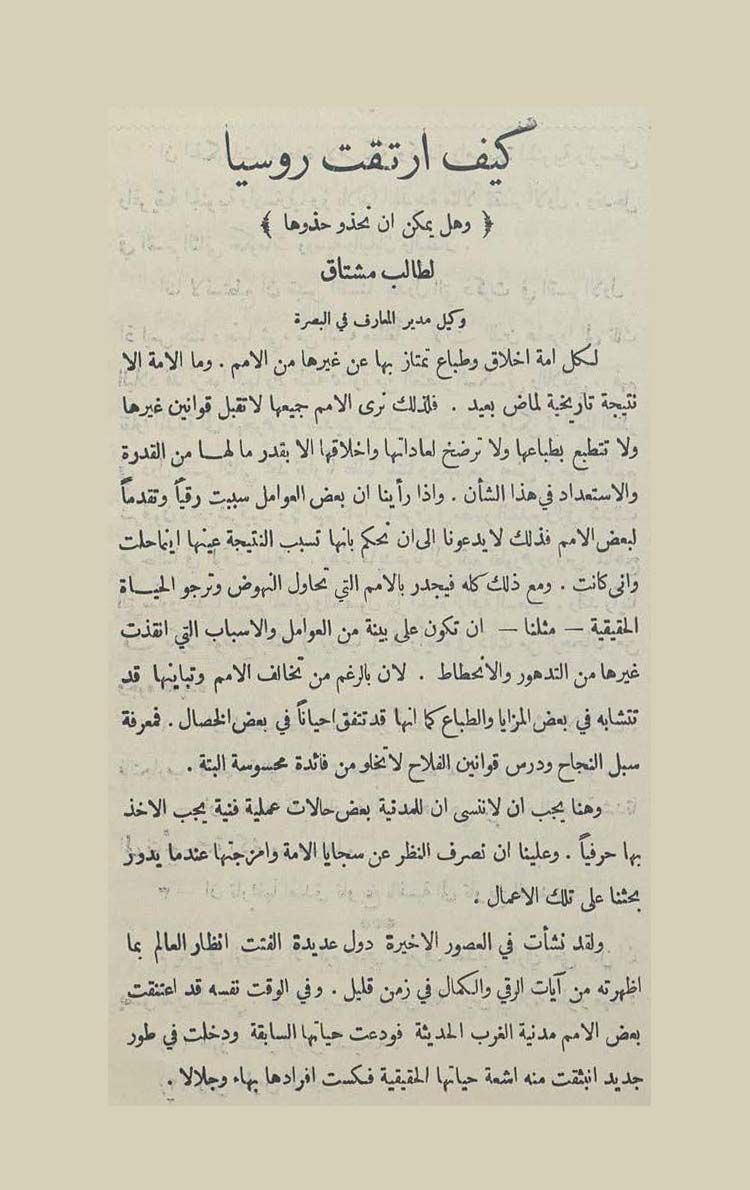 كيف ارتقت روسيا
﴿ وهل يمكن ان نحذو حذوها ﴾
لطالب مشتاق
وكيل مدير المعارف في البصرة
لكل امة اخلاق وطباع تمتاز بها عن غيرها من الامم . وما الامة الا
نتيجة تاريخية لماض بعيد . فلذلك نرى الامم جميعها لاتقبل قوانين غيرها
ولا تتطبع بطباعها ولا ترضخ لعاداتها واخلاقها الا بقدر ما لها من القدرة
والاستعداد في هذا الشأن . واذا رأينا ان بعض العوامل سببت رقياً وتقدماً
لبعض الامم فذلك لايدعونا الى ان نحكم بانها تسبب النتيجة عينها اينما حلت
وانى كانت . ومع ذلك كله فيجدر بالامم التي تحاول النهوض وترجو الحياة
الحقيقية — مثلنا — ان تكون على بينة من العوامل والاسباب التي انقذت
غيرها من التدهور والانحطاط . لان بالرغم من تخالف الامم وتباينها قد
تتشابه في بعض المزايا والطباع كما انها قد تتفق احياناً في بعض الخصال . فمعرفة
سبل النجاح ودرس قوانين الفلاح لاتخلو من فائدة محسوسة البتة .
وهنا يجب ان لاننسى ان للمدنية بعض حالات عملية فنية يجب الاخذ
بها حرفياً . وعلينا ان نصرف النظر عن سجايا الامة وامزجتها عندما يدور
بحثنا على تلك الاعمال .
ولقد نشأت في العصور الاخيرة دول عديدة الفتت انظار العالم بما
اظهرته من آيات الرقي والكمال في زمن قليل . وفي الوقت نفسه قد اعتنقت
بعض الامم مدنية الغرب الحديثة فودعت حياتها السابقة ودخلت في طور
جديد انبثقت منه اشعة حياتها الحقيقية فكست افرادها بهاء وجلالا .